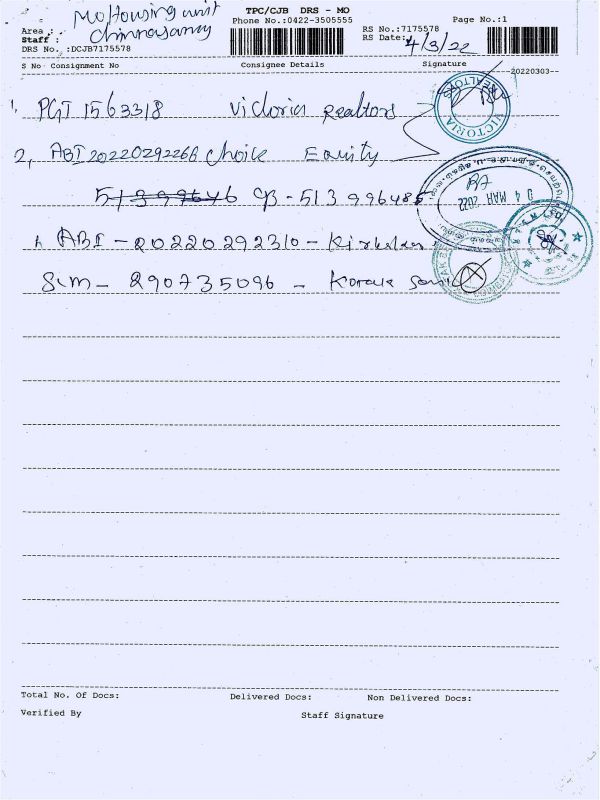 Mo/Housing unit
TPC/CJB DRS - MO
Page No.:1
Area :
Chinnasamy
Phone No.:0422-3505555
RS No.:7175578
Staff :
RS Date: 4/3/22
DRS No. :DCJB7175578
S No Consignment No Consignee Details Signature
20220303-
1, PGT 1563318 Victoria Realtors
VICTORIA REALTORS
2, ABI 20220292266 Choice Equity
51399646 CB - 513996485
04 MAR 2022
ABI - 20220292310 - Kirtilals
SLM - 290735096 -
Total No. Of Docs: Delivered Docs: Non Delivered Docs:
Verified By Staff Signature